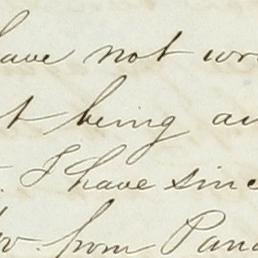 have not wr
t being a
. I have sinc
from Pana